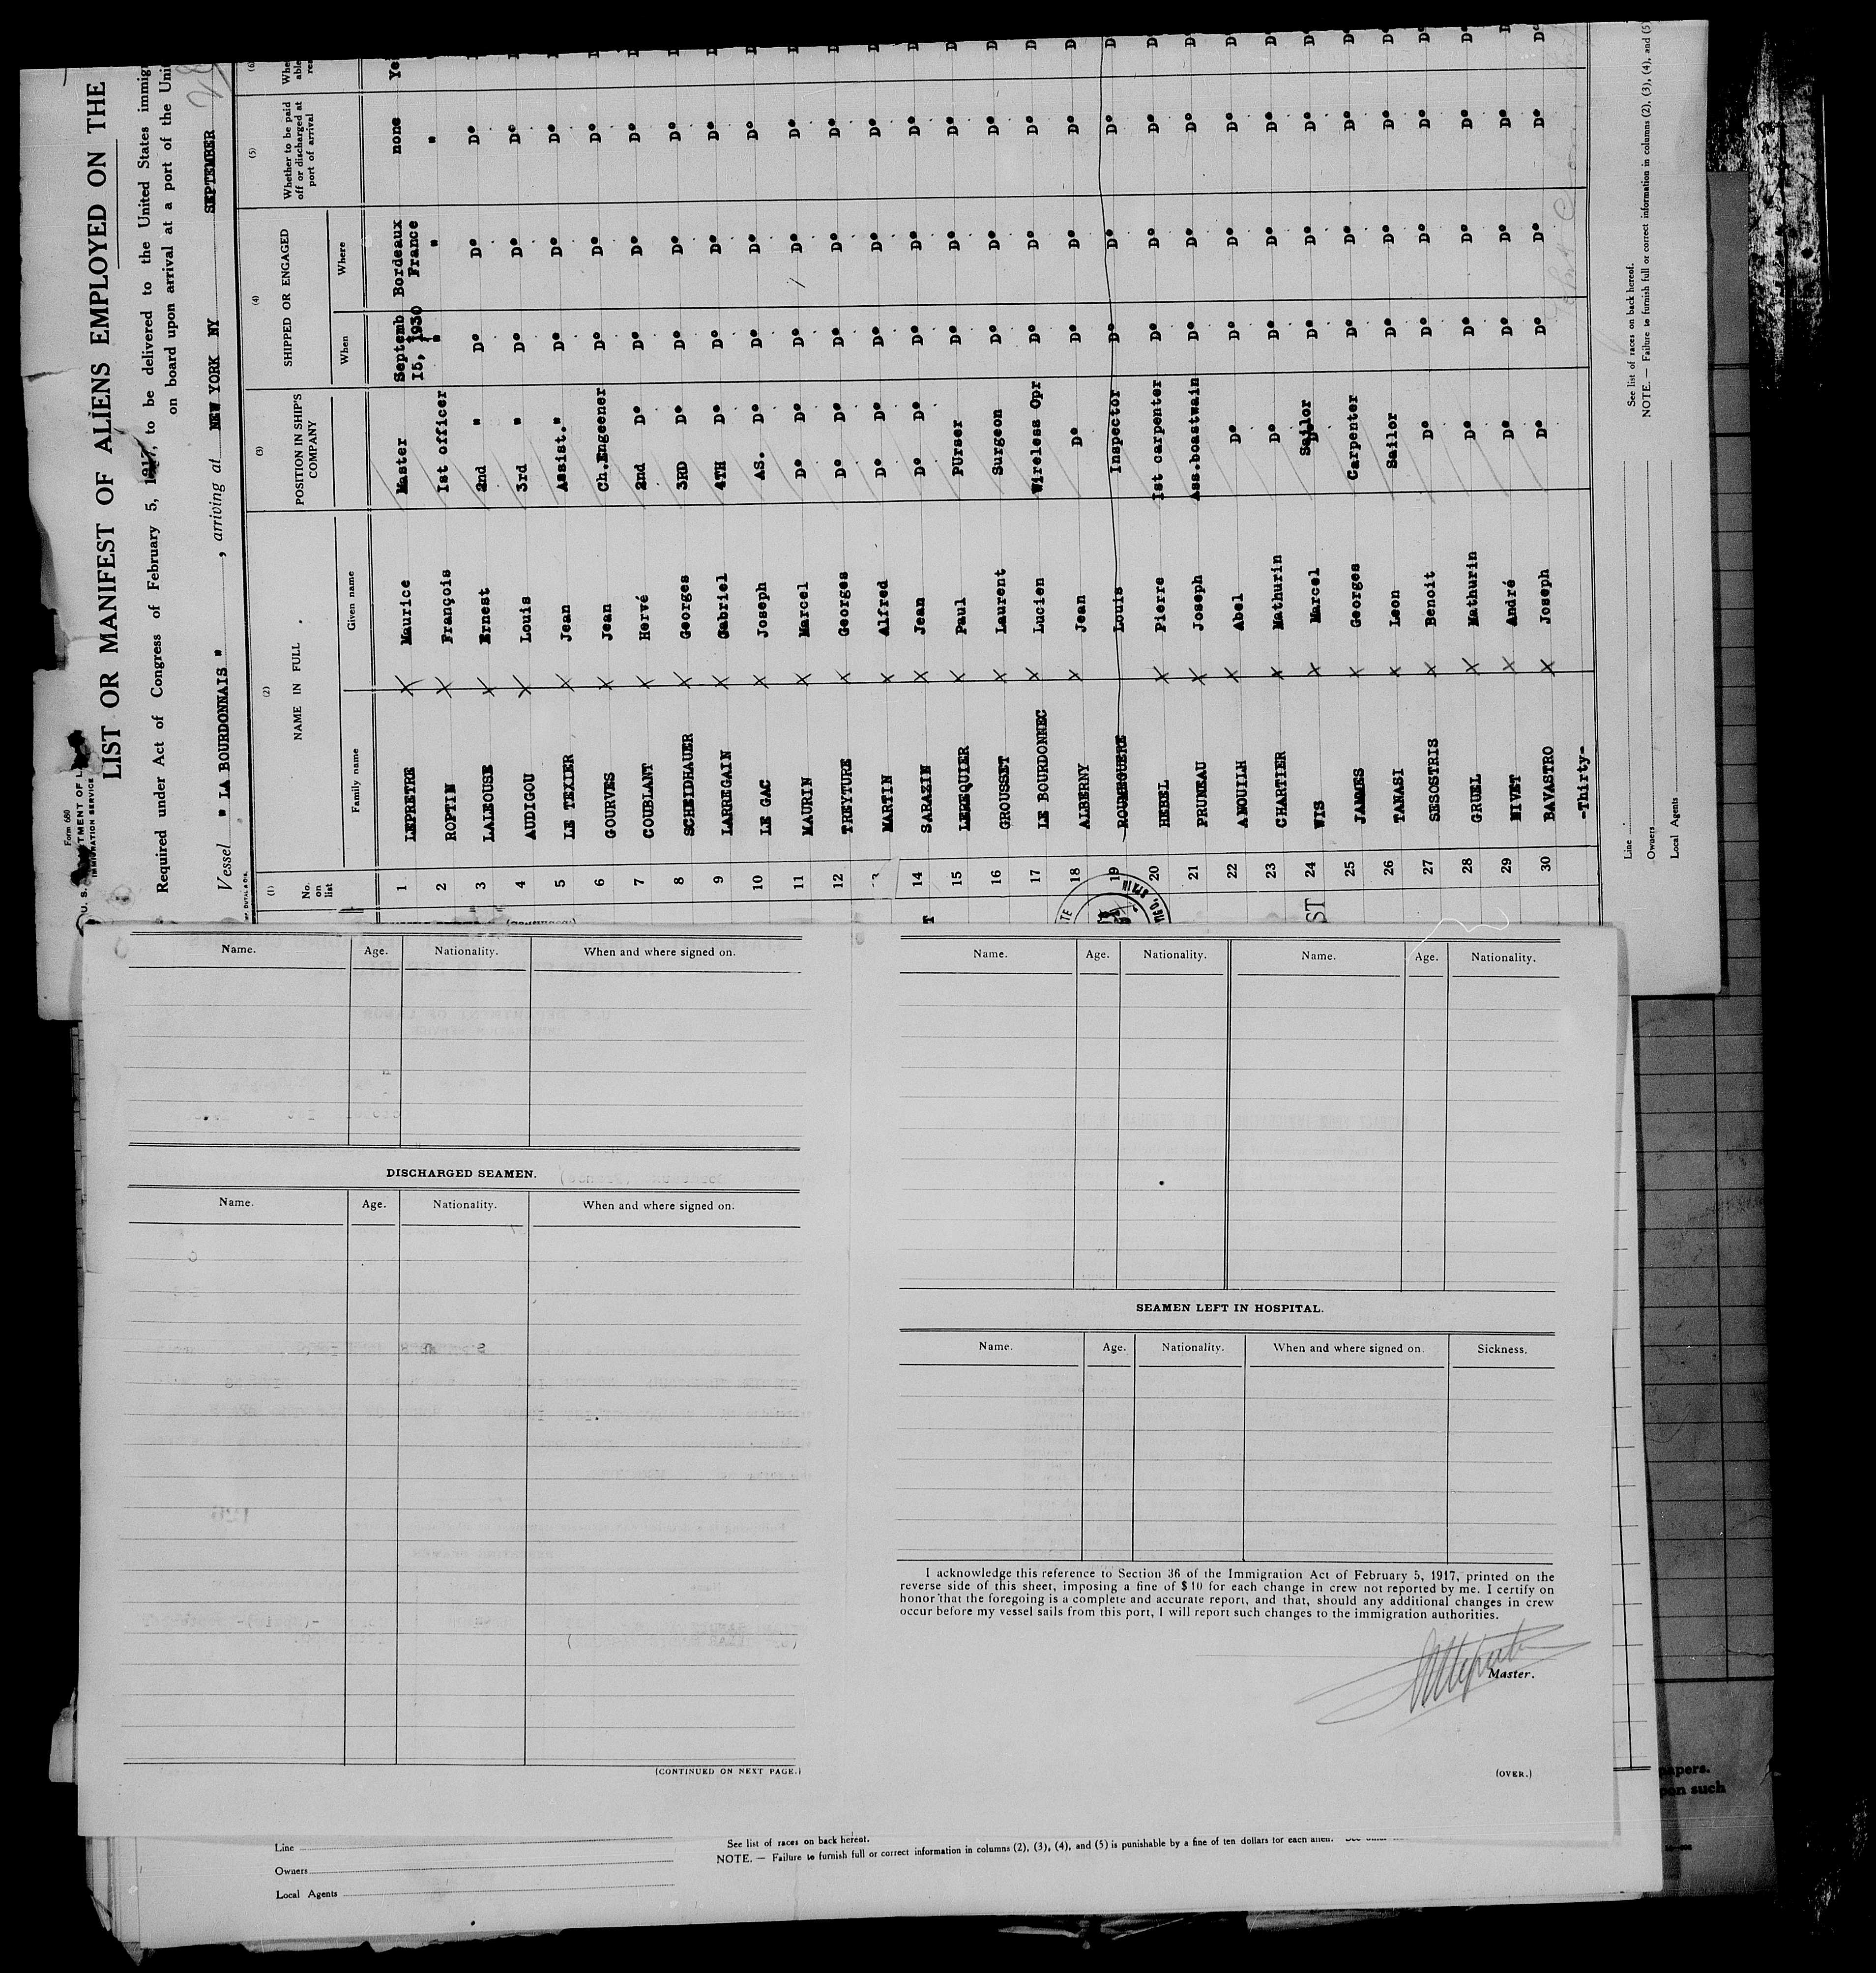 Form 680
U. S. DEPARTMENT OF L
IMMIGRATION SERVICE
LIST OR MANIFEST OF ALIENS EMPLOYED ON THE
Required under Act of Congress of February 5, 1917, to be delivered to the United States immig
on board upon arrival at a port of the Uni
Vessel " LA BOURDONNAIS " , arriving at NEW YORK NY SEPTEMBER
(1) (2) (3) (4) (5) (6)
No. on list NAME IN FULL POSITION IN SHIP'S COMPANY SHIPPED OR ENGAGED Whether to be paid off or discharged at port of arrival Whe able rea
Family name Given name When Where
1 LEPRETRE Maurice Master Septemb I5, 1930 Bordeaux France none Ye
2 ROPTIN François Ist officer " " "
3 LALEOUSE Ernest 2nd " D° D° D° D
4 AUDIGOU Louis 3rd " D° D° D° D
5 LE TEXIER Jean Assist." D° D° D° D
6 GOURVES Jean Ch.Engeener D° D° D° D
7 COUBLANT Hervé 2nd D° D° D° D° D
8 SCHEIDHAUER Georges 3RD D° D° D° D° D
9 LARREGAIN Gabriel 4TH D° D° D° D° D
10 LE GAC Joseph AS. D° D° D° D° D
11 MAURIN Marcel D° D° D° D° D° D
12 TREYTURE Georges D° D° D° D° D° D
13 MARTIN Alfred D° D° D° D° D° D
14 SARAZIN Jean D° D° D° D° D° D
15 LEREQUIER Paul PUrser D° D° D° D
16 GROUSSET Laurent Surgeon D° D° D° D
17 LE BOURDONNEC Lucien Wireless Opr D° D° D° D
18 ALBERNY Jean D° D° D° D° D
19 ROUMEGUERE Louis Inspector D° D° D° D
20 HEBEL Pierre Ist carpenter D° D° D° D°
21 PRUNEAU Joseph Ass.boastwain D° D° D° D°
22 ANOUILH Abel D° D° D° D° D°
23 CHARTIER Mathurin D° D° D° D° D°
24 WIS Marcel Sailor D° D° D° D°
25 JAMMES Georges Carpenter D° D° D° D°
26 TANASI Leon Sailor D° D° D° D°
27 SESOSTRIS Benoit D° D° D° D° D°
28 GRUEL Mathurin D° D° D° D° D°
29 NIVET André D° D° D° D° D
30 BAVASTRO Joseph D° D° D° D° D°
-Thirty-
Line
Owners
Local Agents
See list of races on back hereof.
NOTE. — Failure to furnish full or correct information in columns (2), (3), (4), and (5
Name. Age. Nationality. When and where signed on.
DISCHARGED SEAMEN.
Name. Age. Nationality. When and where signed on.
(CONTINUED ON NEXT PAGE.)
Name. Age. Nationality. Name. Age. Nationality.
SEAMEN LEFT IN HOSPITAL.
Name. Age. Nationality. When and where signed on. Sickness.
I acknowledge this reference to Section 36 of the Immigration Act of February 5, 1917, printed on the
reverse side of this sheet, imposing a fine of $10 for each change in crew not reported by me. I certify on
honor that the foregoing is a complete and accurate report, and that, should any additional changes in crew
occur before my vessel sails from this port, I will report such changes to the immigration authorities.
Master.
(OVER.)
papers.
such
Line
Owners
Local Agents
See list of races on back hereof.
NOTE. — Failure to furnish full or correct information in columns (2), (3), (4), and (5) is punishable by a fine of ten dollars for each alien.